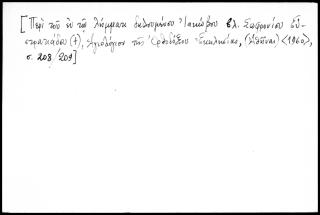 [Περὶ τοῦ ἐν τῷ λήμματι δηλουμένου Ἰακώβου βλ. Σωφρονίου Εὐ-
στρατιάδου (†), Ἁγιολόγιον τῆς Ὀρθοδόξου Ἐκκλησίας, (Ἀθῆναι) <1960>,
σ. 208/209]